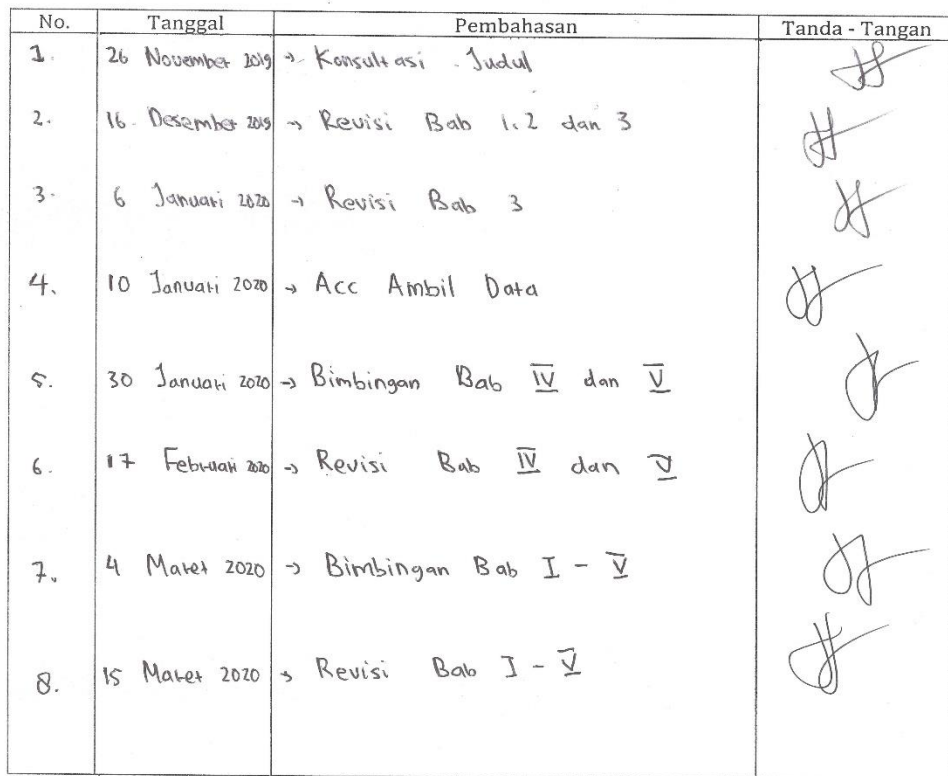 No. Tanggal Pembahasan Tanda - Tangan
1. 26 November 2019 → Konsultasi Judul
2. 16 Desember 2019 → Revisi Bab 1, 2 dan 3
3. 6 Januari 2020 → Revisi Bab 3
4. 10 Januari 2020 → Acc Ambil Data
5. 30 Januari 2020 → Bimbingan Bab IV dan V
6. 17 Februari 2020 → Revisi Bab IV dan V
7. 4 Maret 2020 → Bimbingan Bab I - V
8. 15 Maret 2020 → Revisi Bab I - V